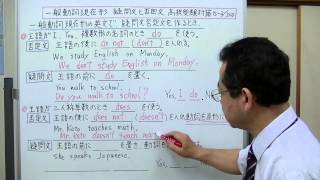 一般動詞現在形 疑問文と否定文 高校受験対策
一般動詞現在の英文で、疑問文否定文を作るとき
主語がI、You、複数形の名詞のとき do を使う。
否定文 主語の後に do not (don't) を入れる。
We study English on Monday.
We don't study English on Monday.
疑問文 主語の前に do を置く。
You walk to school.
Do you walk to school? Yes, I do. N
主語が三人称単数のとき does を使う。
否定文 主語の後に does not (doesn't) を入れ動詞を
Mr. Kato teaches math.
Mr. Kato doesn't teach math.
疑問文 主語の前に を置き、動詞
She speaks Japanese.
Yes,